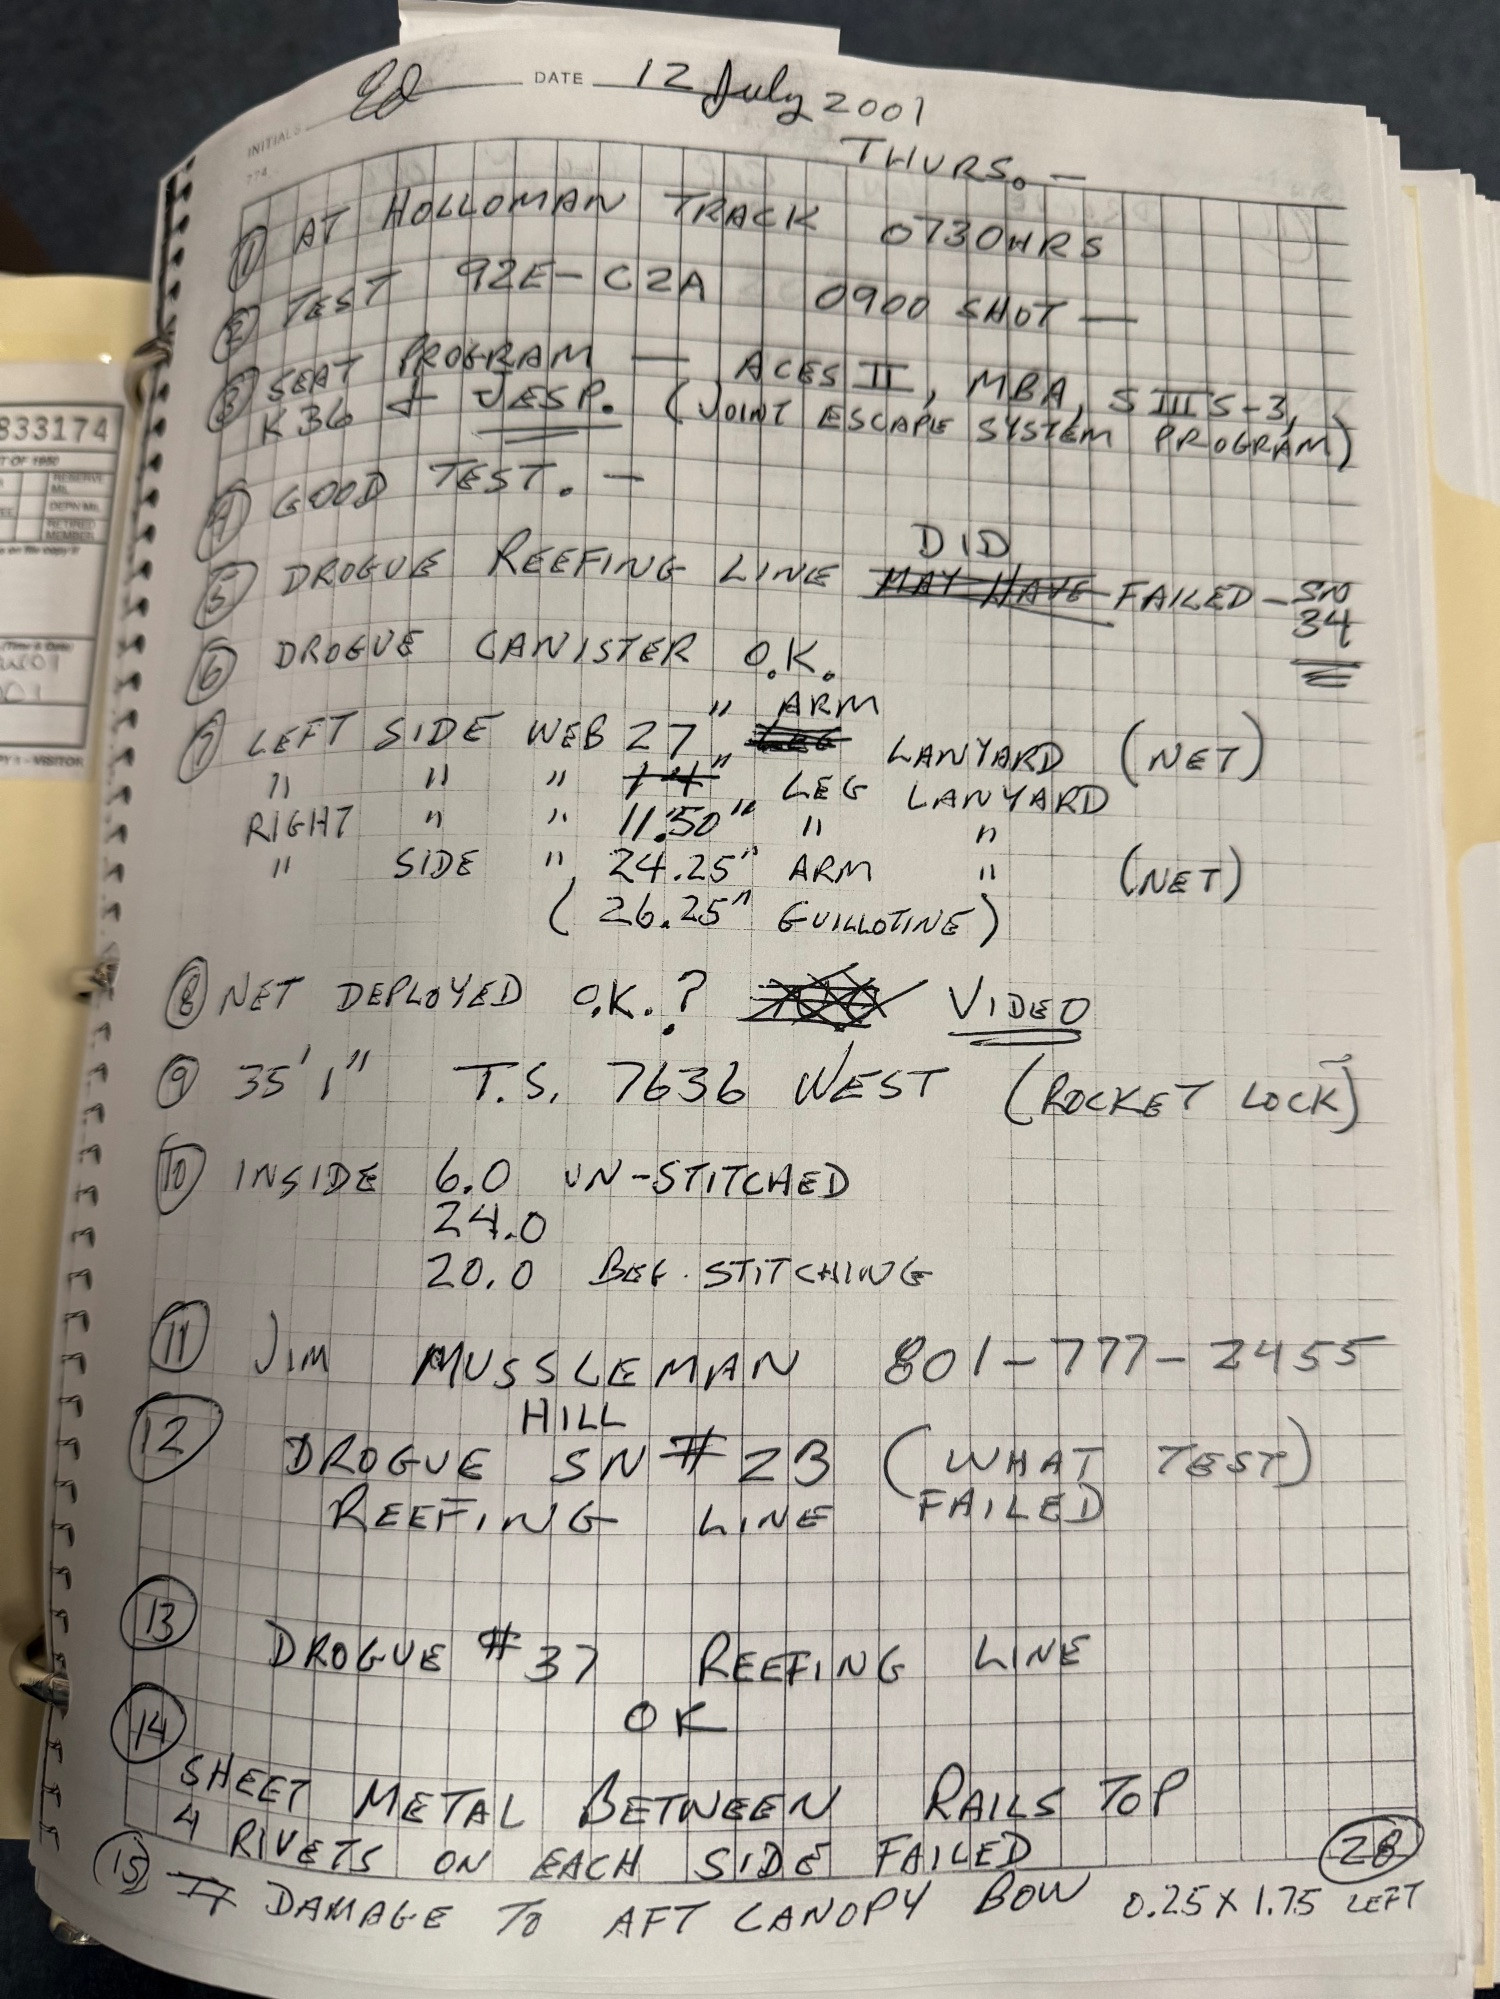 Ed DATE 12 July 2001
INITIALS
774
THURS. —
① AT HOLLOMAN TRACK 0730HRS
② TEST 92E-C2A 0900 SHOT —
③ SEAT PROGRAM — ACES II, MBA, SIIIS-3,
K36 & JESP. (JOINT ESCAPE SYSTEM PROGRAM)
④ GOOD TEST. —
DID
⑤ DROGUE REEFING LINE MAY HAVE FAILED - SN
34
⑥ DROGUE CANISTER O.K.
ARM
⑦ LEFT SIDE WEB 27" LEG LANYARD (NET)
" " " 14" LEG LANYARD
RIGHT " " 11.50" " "
" SIDE " 24.25" ARM " (NET)
(26.25" GUILLOTINE)
⑧ NET DEPLOYED O.K.? VIDEO
⑨ 35'1" T.S. 7636 WEST (ROCKET LOCK)
⑩ INSIDE 6.0 UN-STITCHED
24.0
20.0 BEG. STITCHING
⑪ JIM MUSSLEMAN 801-777-2455
HILL
⑫ DROGUE SN # 23 (WHAT TEST)
REEFING LINE FAILED
⑬ DROGUE #37 REEFING LINE
OK
⑭ SHEET METAL BETWEEN RAILS TOP
4 RIVETS ON EACH SIDE FAILED
28
⑮ DAMAGE TO AFT CANOPY BOW 0.25 X 1.75 LEFT
833174
T OF 1950
RESERVE
MIL
DEPN MIL
RETIRED
MEMBER
(Time & Date)
001
- VISITOR